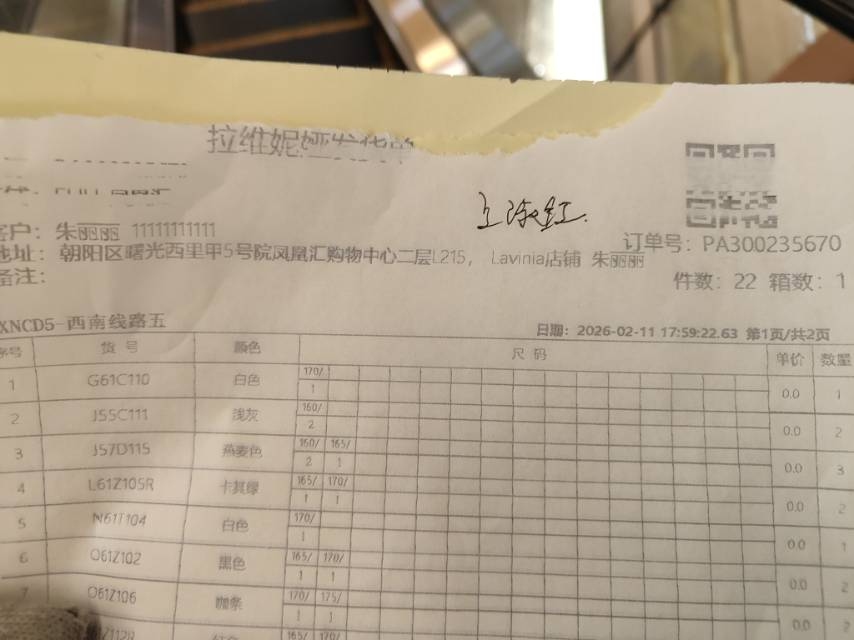 拉维妮娅发货单
客户：朱丽丽 11111111111
地址：朝阳区曙光西里甲5号院凤凰汇购物中心二层L215， Lavinia店铺 朱丽丽
备注：
订单号：PA300235670
件数：22 箱数：1
XNCD5-西南线路五
日期：2026-02-11 17:59:22.63 第1页/共2页
序号 货号 颜色 尺码 单价 数量
1 G61C110 白色 170/ 1 0.0 1
2 J55C111 浅灰 160/ 2 0.0 2
3 J57D115 燕麦色 160/ 165/ 2 1 0.0 3
4 L61Z105R 卡其绿 165/ 170/ 1 1 0.0 2
5 N61T104 白色 170/ 1 0.0 1
6 O61Z102 黑色 165/ 170/ 1 1 0.0 2
7 O61Z106 咖条 170/ 175/ 1 1 0.0 2
165/ 170/ 0.0 2